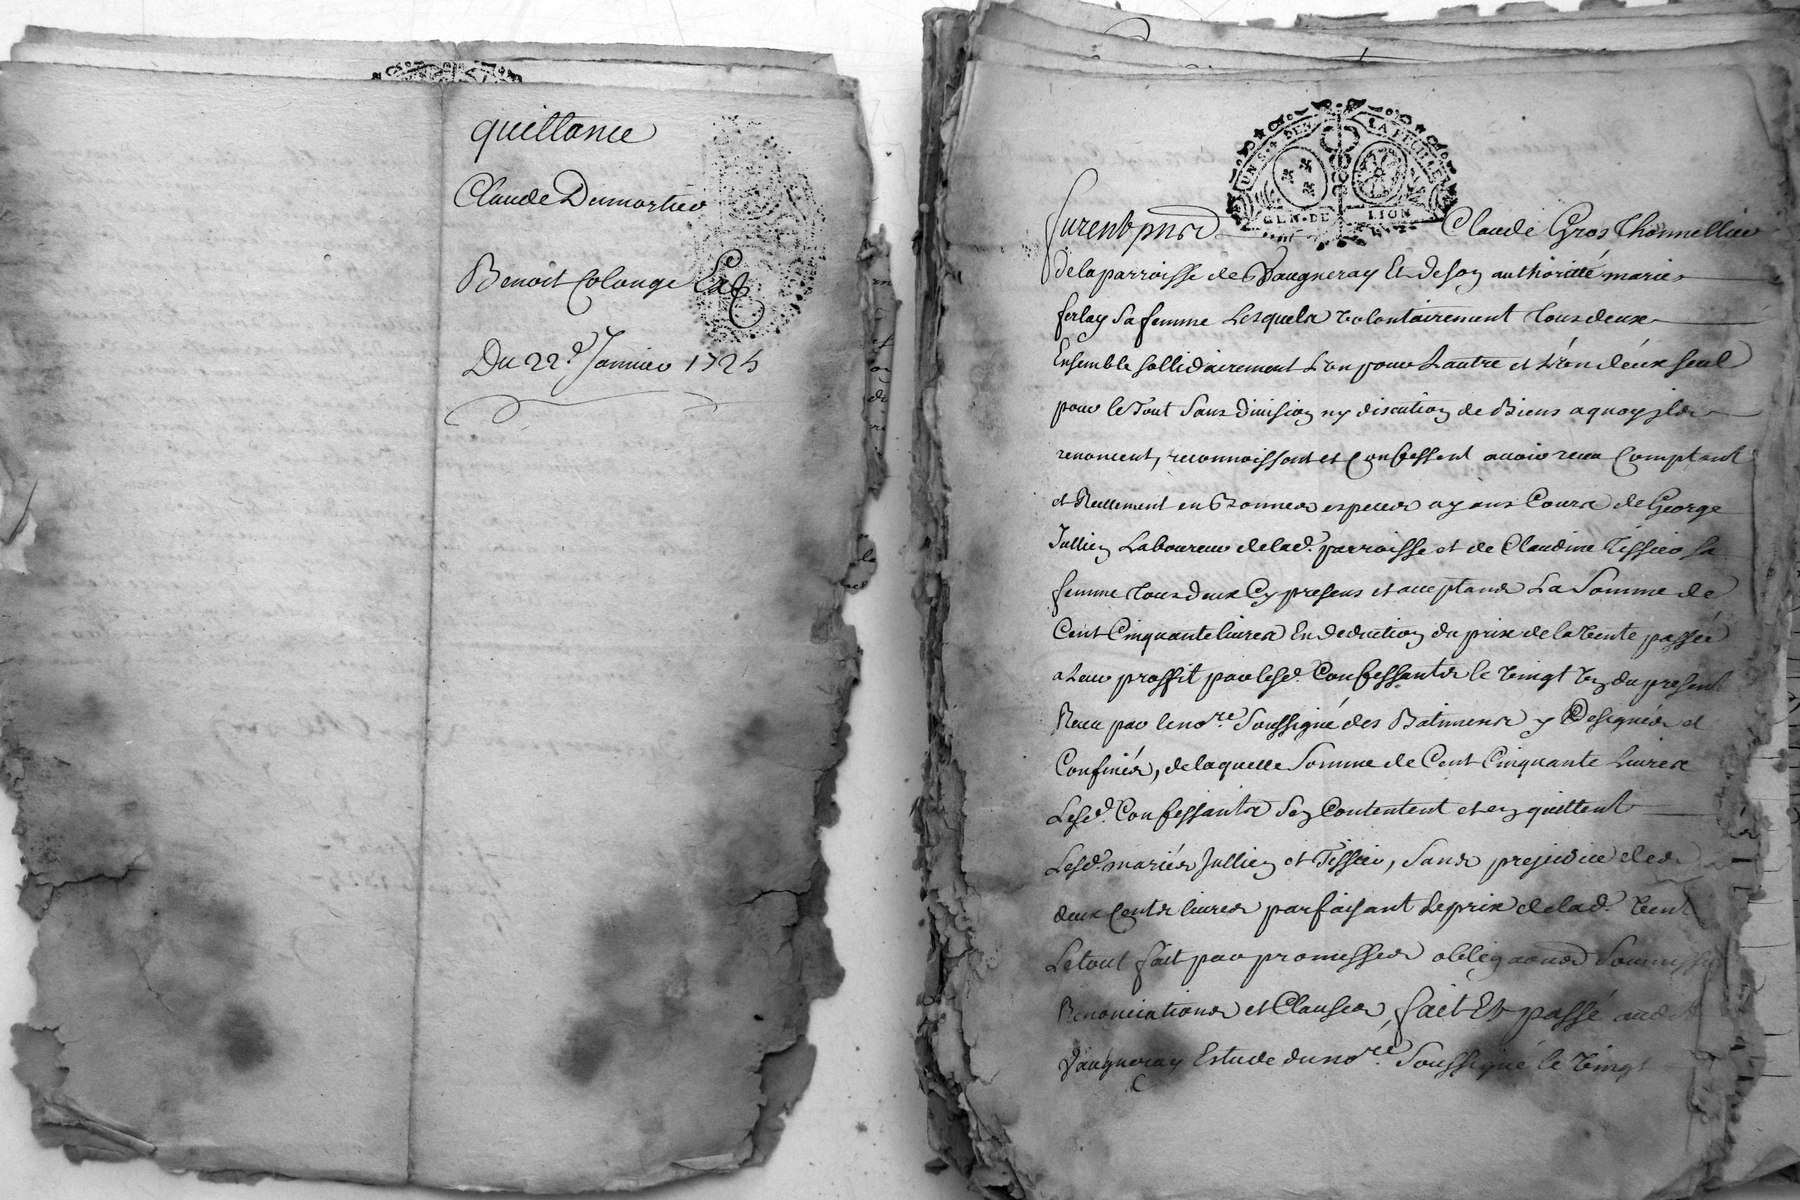 quittance
Claude Dumortier
Benoit Colonge Et C
Du 22.e Janvier 1725
UN S. 4 DEN. LA FEUILLE
GEN. DE LION
furent pnts Claude Gros Thonnellier
de la parroisse de Vaugneray Et de son authorité marie
ferlay Sa femme Lesquels volontairement tous deux
Ensemble sollidairement L'un pour L'autre et L'un d'eux seul
pour le tout Sans division ny discution de Biens a quoy jls
renoncent, reconnoissent et Confessent avoir receu Comptant
et Reellement en Bonnes especes ayans Cours de George
Jullien Laboureur de lad. parroisse et de Claudine Tissier sa
femme tous deux Cy presens et acceptans La Somme de
Cent Cinquante livres En deduction du prix de la Vente passée
a Leur proffit par lesd. Confessants le vingt un du present
Receu par le no.re Soussigné des Batimens y Designés et
Confinés, de laquelle Somme de Cent Cinquante Livres
Lesd. Confessants S'en Contentent et en quittent
Lesd. mariés Jullien et Tissier, Sans prejudice des
deux Cents livres parfaisant Le prix de lad. Vent
Le tout fait par promesses obligaons Soumiss
Renonciations et Clauses, fait Et passé audit
Vaugneray Estude du no.re Soussigné le vingt